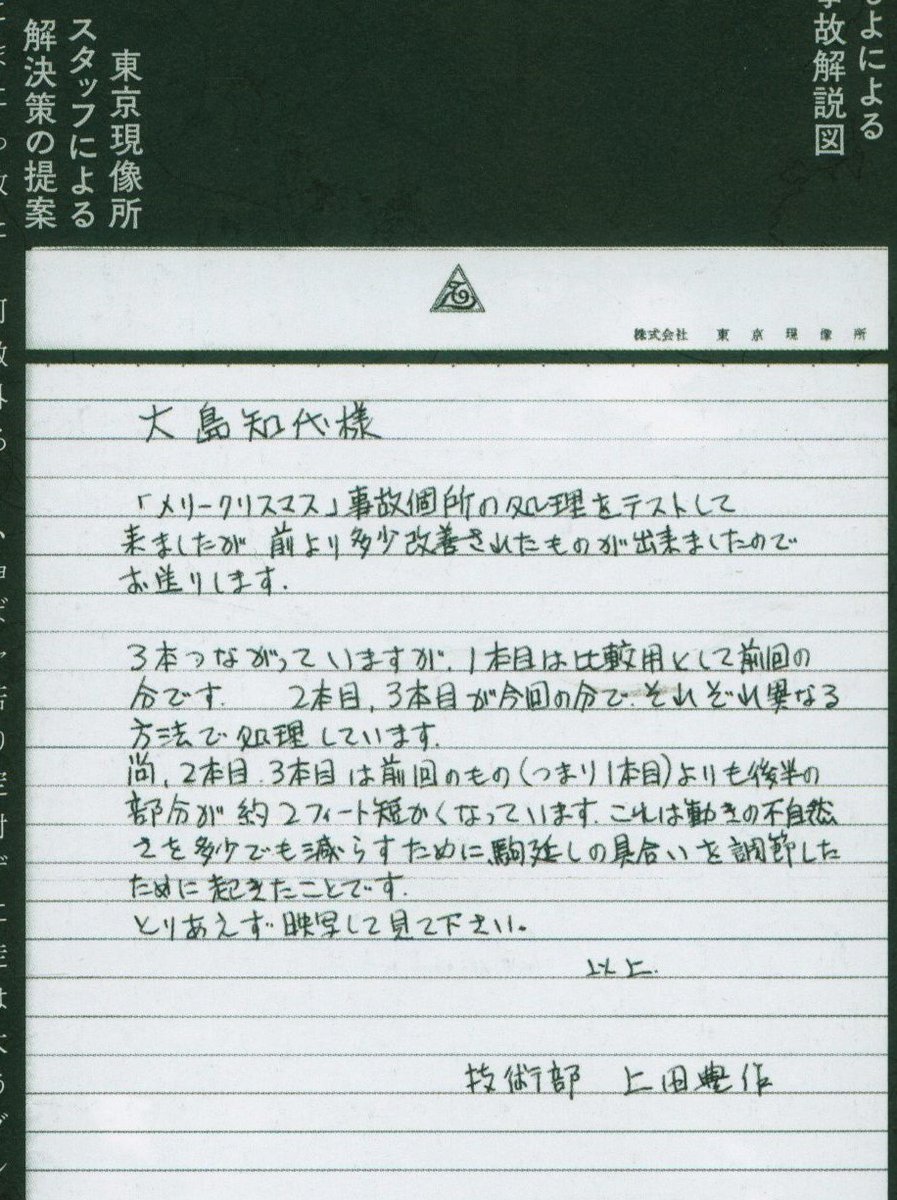 よによる
事故解説図
東京現像所
スタッフによる
解決策の提案
株式会社 東京現像所
大島知代様
「メリークリスマス」事故個所の処理をテストして
来ましたが 前より多少改善されたものが出来ましたので
お送りします.
3本つながっていますが、1本目は比較用として前回の
分です. 2本目,3本目が今回の分で、それぞれ異なる
方法で処理しています.
尚,2本目.3本目は前回のもの(つまり1本目)よりも後半の
部分が約2フィート短かくなっています.これは動きの不自然
さを多少でも減らすために駒延しの具合いを調節した
ために起きたことです.
とりあえず映写して見て下さい。
以上.
技術部 上田典作